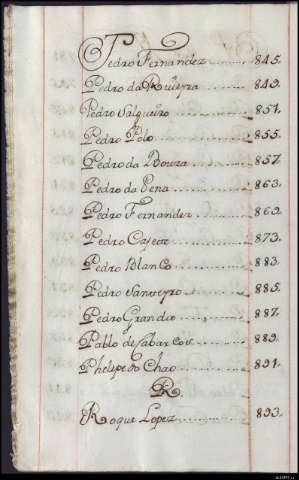 Pedro Fernandez ........ 845.
Pedro da Riueyra ........ 849.
Pedro Salgueiro ........ 851.
Pedro Polo ........ 855.
Pedro da Bouza ........ 857.
Pedro da Pena ........ 863.
Pedro Fernandez ........ 869.
Pedro ........ 873.
Pedro Blanco ........ 883.
Pedro ........ 885.
Pedro Grande ........ 887.
Pablo de Sabarcos ........ 889.
Phelipe do Chao ........ 891.
R.
Roque Lopez ........ 893.